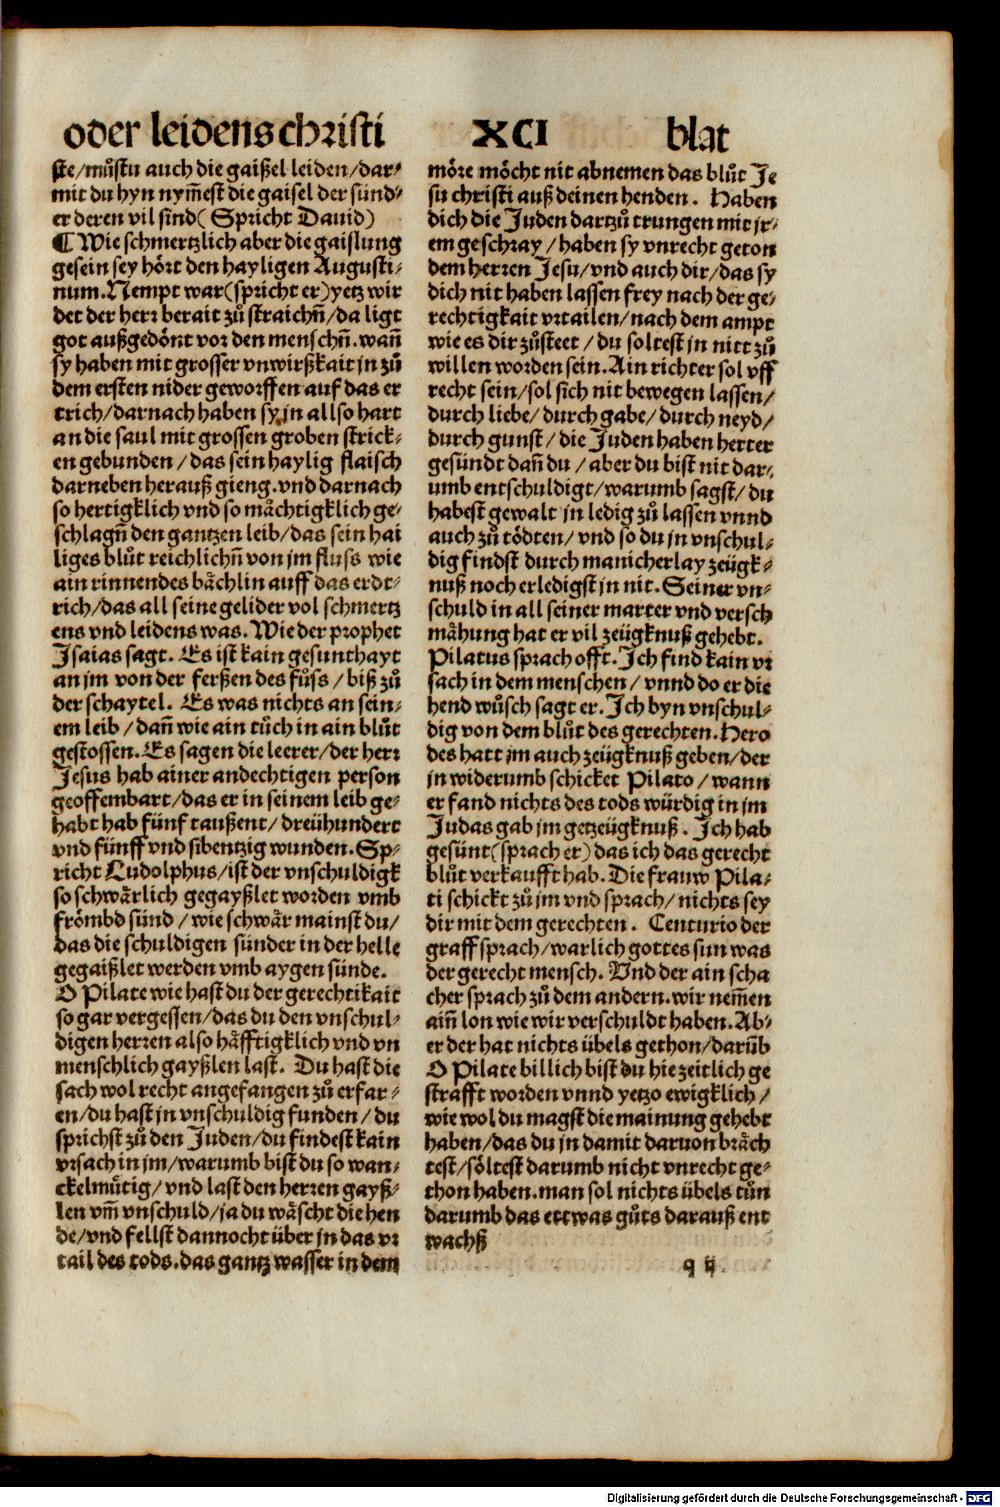 oder leidens christi XCI blat
ste/můstu auch die gaißel leiden/dar⸗
mit du hyn nym̄est die gaisel der sünd⸗
er deren vil sind( Spricht Dauid)
¶ Wie schmertzlich aber die gaislung
gesein sey hört den hayligen Augusti⸗
num. Nempt war(spricht er)yetz wir
det der herr berait zů straichn̄/da ligt
got außgedönt vor den menschn̄. wan̄
sy haben mit grosser vnwirßkait jn zů
dem ersten nider geworffen auf das er
trich/darnach haben sy jn allso hart
an die saul mit grossen groben strick⸗
en gebunden /das sein haylig flaisch
darneben herauß gieng. vnd darnach
so hertigklich vnd so mächtigklich ge⸗
schlagn̄ den gantzen leib/das sein hai
liges blůt reichlichn̄ von jm fluss wie
ain rinnendes bächlin auff das erdt⸗
rich/das all seine gelider vol schmertz
ens vnd leidens was. Wie der prophet
Isaias sagt. Es ist kain gesunthayt
an jm von der ferßen des fůss / biß zů
der schaytel. Es was nichts an sein⸗
em leib / dan̄ wie ain tůch in ain blůt
gestossen. Es sagen die leerer/der herr
Jesus hab ainer andechtigen person
geoffembart/das er in seinem leib ge⸗
habt hab fünf taußent/ dreühundert
vnd fünff vnd sibentzig wunden. Sp⸗
richt Ludolphus/ist der vnschuldigk
so schwärlich gegayßlet worden vmb
frömbd sünd / wie schwär mainst du/
das die schuldigen sünder in der helle
gegaißlet werden vmb aygen sünde.
O Pilate wie hast du der gerechtikait
so gar vergessen/das du den vnschul⸗
digen herren also häfftigklich vnd vn
menschlich gayßlen last. Du hast die
sach wol recht angefangen zů erfar⸗
en/du hast jn vnschuldig funden/ du
sprichst zů den Juden/du findest kain
vrsach in jm/warumb bist du so wan⸗
ckelmůtig/ vnd last den herren gayß⸗
len vm̄ vnschuld/ja du wäscht die hen
de/vnd fellst dannocht über jn das vr
tail des tods. das gantz wasser in dem
möre möcht nit abnemen das blůt Je
su christi auß deinen henden. Haben
dich die Juden dartzů trungen mit jr⸗
em geschray /haben sy vnrecht geton
dem herren Jesu/vnd auch dir/das sy
dich nit haben lassen frey nach der ge⸗
rechtigkait vrtailen/nach dem ampt
wie es dir zůsteet / du soltest jn nitt zů
willen worden sein. Ain richter sol vff
recht sein/sol sich nit bewegen lassen/
durch liebe/durch gabe/durch neyd/
durch gunst/ die Juden haben herter
gesündt dan̄ du /aber du bist nit dar⸗
umb entschuldigt/warumb sagst/ du
habest gewalt jn ledig zů lassen vnnd
auch zů tödten/ vnd so du jn vnschul⸗
dig findst durch manicherlay zeügk⸗
nuß noch erledigst jn nit. Seiner vn⸗
schuld in all seiner marter vnd versch
mähung hat er vil zeügknuß gehebt.
Pilatus sprach offt. Ich find kain vr
sach in dem menschen/ vnnd do er die
hend wůsch sagt er. Ich byn vnschul⸗
dig von dem blůt des gerechten. Hero
des hatt jm auch zeügknuß geben/der
jn widerumb schicket Pilato / wann
er fand nichts des tods würdig in jm
Judas gab jm getzeügknuß. Ich hab
gesünt(sprach er) das ich das gerecht
blůt verkaufft hab. Die frauw Pila⸗
ti schickt zů jm vnd sprach/ nichts sey
dir mit dem gerechten. Centurio der
graff sprach/warlich gottes sun was
der gerecht mensch. Vnd der ain scha
cher sprach zů dem andern. wir nem̄en
ain̄ lon wie wir verschuldt haben. Ab⸗
er der hat nichts übels gethon/darüb
O Pilate billich bist du hie zeitlich ge
strafft worden vnnd yetzo ewigklich /
wie wol du magst die mainung gehebt
haben/das du jn damit daruon bräch
test/söltest darumb nicht vnrecht ge⸗
thon haben. man sol nichts übels tůn
darumb das ettwas gůts darauß ent
wachß
q ij
Digitalisierung gefördert durch die Deutsche Forschungsgemeinschaft - DFG